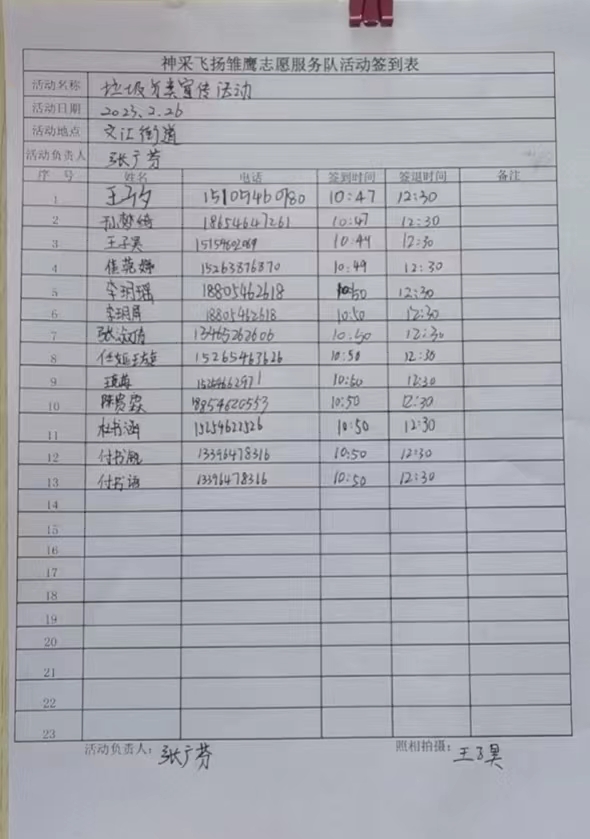 神采飞扬雏鹰志愿服务队活动签到表
活动名称 垃圾分类宣传活动
活动日期 2023.2.26
活动地点 文江街道
活动负责人 张广芬
序 号 姓名 电话 签到时间 签退时间 备注
1 王子夕 15105460780 10:47 12:30
2 孙梦绮 18654647261 10:47 12:30
3 王子昊 15154602069 10:49 12:30
4 15263876870 10:49 12:30
5 李玥瑶 18805462618 10:50 12:30
6 李玥屏 18805462618 10:50 12:30
7 13465262606 10:50 12:30
8 15265463626 10:50 12:30
9 15254662971 10:50 12:30
10 18854620553 10:50 12:30
11 杜书涵 15254622526 10:50 12:30
12 13396478316 10:50 12:30
13 付书语 13396478316 10:50 12:30
14
15
16
17
18
19
20
21
22
23
活动负责人：张广芬 照相拍摄：王子昊